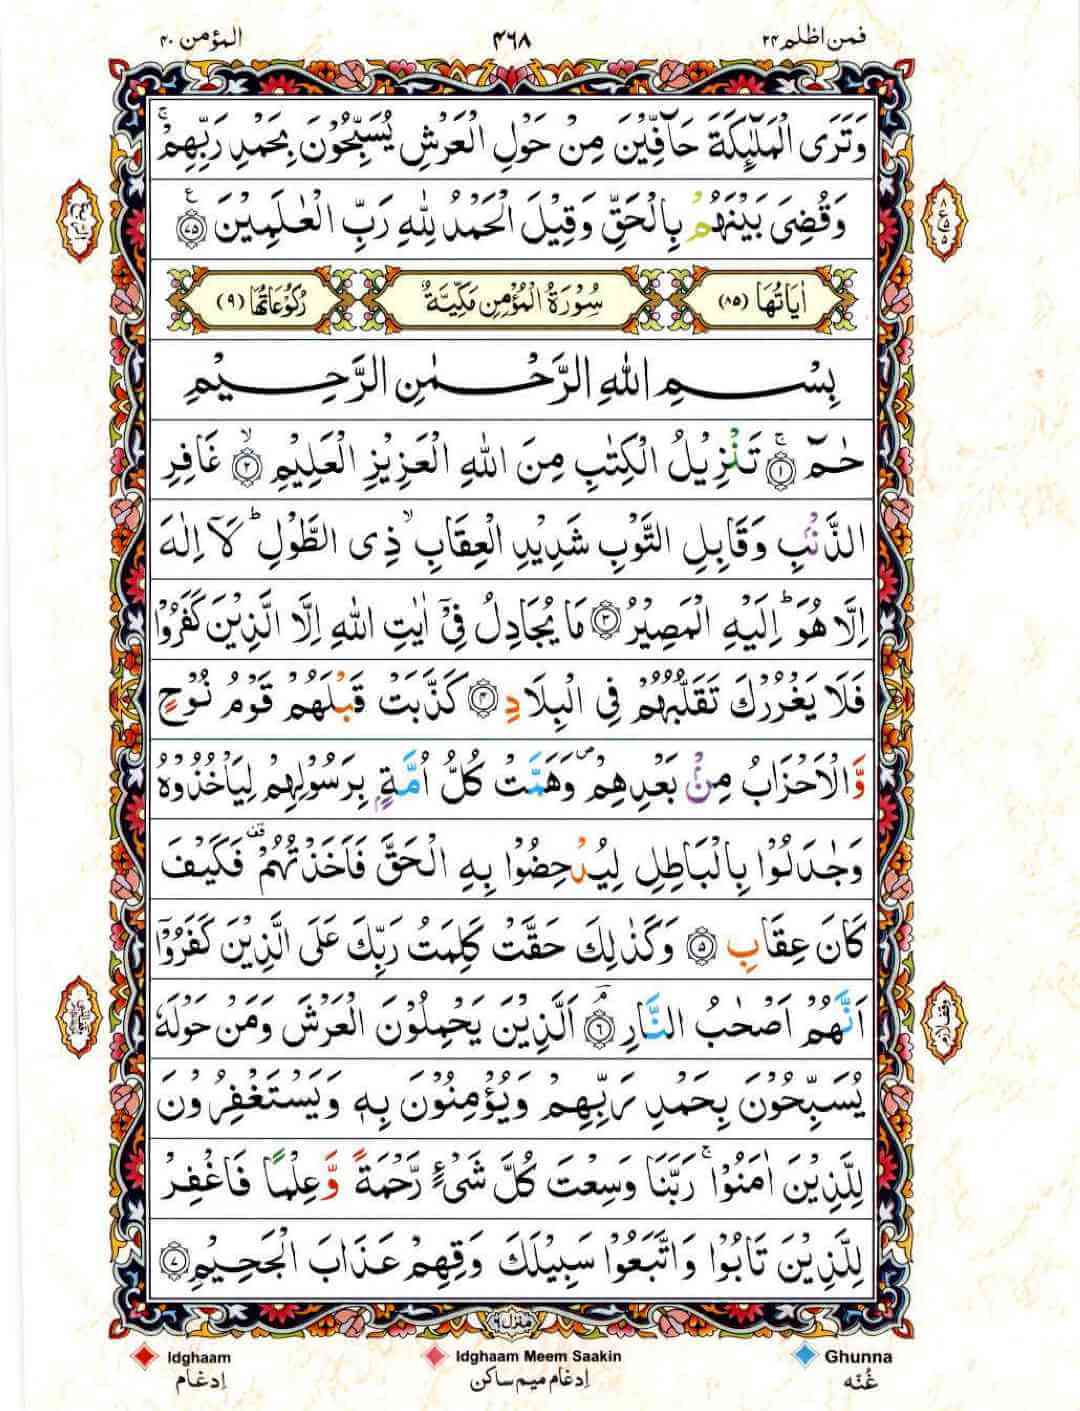 فمن اظلم ٢٤
٤٦٨
المؤمن ٤٠
وَتَرَى الْمَلٰٓئِكَةَ حَآفِّيْنَ مِنْ حَوْلِ الْعَرْشِ يُسَبِّحُوْنَ بِحَمْدِ رَبِّهِمْ ۚ
وَقُضِىَ بَيْنَهُمْ بِالْحَقِّ وَقِيْلَ الْحَمْدُ لِلّٰهِ رَبِّ الْعٰلَمِيْنَ ﴿٧٥﴾
اٰيَاتُهَا (٨٥)
سُوْرَةُ الْمُؤْمِنِ مَكِّيَّةٌ
رُكُوْعَاتُهَا (٩)
بِسْمِ اللّٰهِ الرَّحْمٰنِ الرَّحِيْمِ
حٰمٓ ﴿١﴾ ۚ تَنْزِيْلُ الْكِتٰبِ مِنَ اللّٰهِ الْعَزِيْزِ الْعَلِيْمِ ﴿٢﴾ ۙ غَافِرِ
الذَّنْۢبِ وَقَابِلِ التَّوْبِ شَدِيْدِ الْعِقَابِ ۙ ذِى الطَّوْلِ ؕ لَاۤ اِلٰهَ
اِلَّا هُوَ ؕ اِلَيْهِ الْمَصِيْرُ ﴿٣﴾ مَا يُجَادِلُ فِىْۤ اٰيٰتِ اللّٰهِ اِلَّا الَّذِيْنَ كَفَرُوْا
فَلَا يَغْرُرْكَ تَقَلُّبُهُمْ فِى الْبِلَادِ ﴿٤﴾ كَذَّبَتْ قَبْلَهُمْ قَوْمُ نُوْحٍ
وَّالْاَحْزَابُ مِنْۢ بَعْدِهِمْ ۖ وَهَمَّتْ كُلُّ اُمَّةٍۭ بِرَسُوْلِهِمْ لِيَاْخُذُوْهُ
وَجٰدَلُوْا بِالْبَاطِلِ لِيُدْحِضُوْا بِهِ الْحَقَّ فَاَخَذْتُهُمْ ۗ فَكَيْفَ
كَانَ عِقَابِ ﴿٥﴾ وَكَذٰلِكَ حَقَّتْ كَلِمَتُ رَبِّكَ عَلَى الَّذِيْنَ كَفَرُوْۤا
اَنَّهُمْ اَصْحٰبُ النَّارِ ﴿٦﴾ ۘ اَلَّذِيْنَ يَحْمِلُوْنَ الْعَرْشَ وَمَنْ حَوْلَهٗ
يُسَبِّحُوْنَ بِحَمْدِ رَبِّهِمْ وَيُؤْمِنُوْنَ بِهٖ وَيَسْتَغْفِرُوْنَ
لِلَّذِيْنَ اٰمَنُوْا ۚ رَبَّنَا وَسِعْتَ كُلَّ شَىْءٍ رَّحْمَةً وَّعِلْمًا فَاغْفِرْ
لِلَّذِيْنَ تَابُوْا وَاتَّبَعُوْا سَبِيْلَكَ وَقِهِمْ عَذَابَ الْجَحِيْمِ ﴿٧﴾
منزل ٦
Idghaam
Idghaam Meem Saakin
Ghunna
اِدغَام
اِدغَام مِيم سَاكِن
غُنَّه
وقف لازم